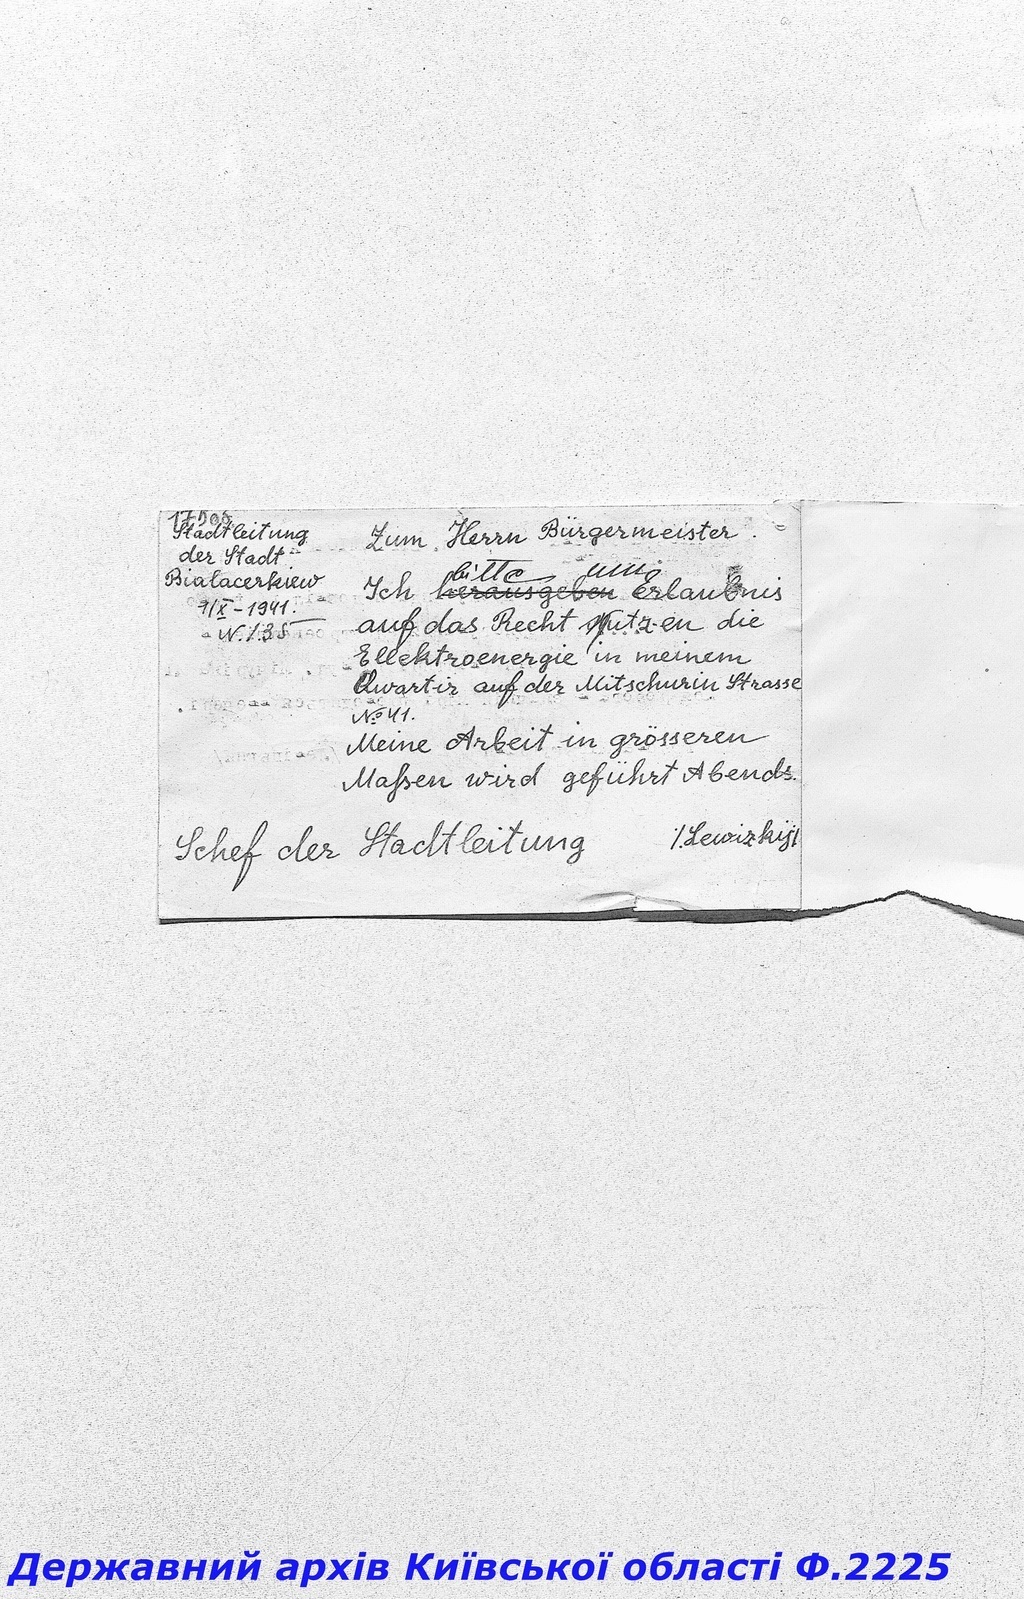 Stadtleitung
der Stadt
Bialacerkiew
1/X-1941.
N. 135
Zum Herrn Bürgermeister.
bitte um
Ich herausgeben erlaubnis
auf das Recht Nutzen die
Ellektroenergie in meinem
Qwartir auf der Mitschurin Strasse
№ 41.
Meine Arbeit in grösseren
Maßen wird geführt Abends.
Schef der Stadtleitung /Lewizkij/
Державний архів Київської області Ф.2225